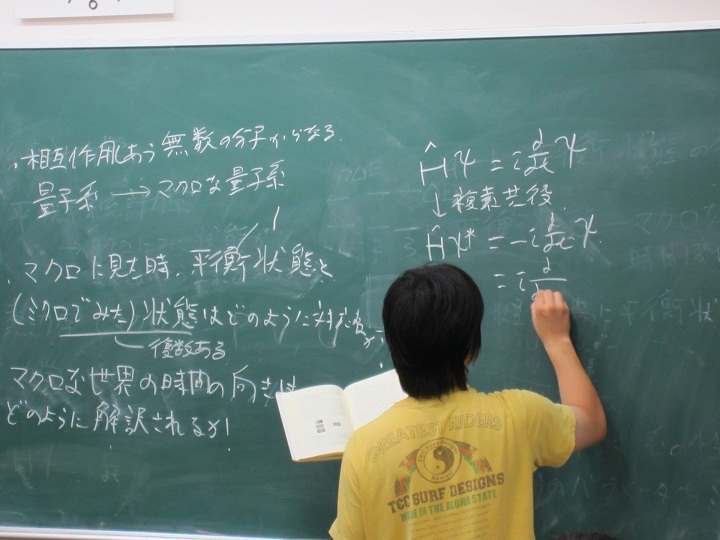 ・相互作用しあう無数の分子からなる
量子系 → マクロな量子系
・マクロに見た時、平衡状態と
(ミクロでみた)状態はどのように対応
複数ある
マクロな世界の時間の向きは
どのように解訳されるか!
Ĥψ = i d/dt ψ
↓ 複素共役
Ĥψ* = -i d/dt ψ
= i d
GREATEST RIDERS
T&C SURF DESIGNS
MADE IN THE ALOHA STATE